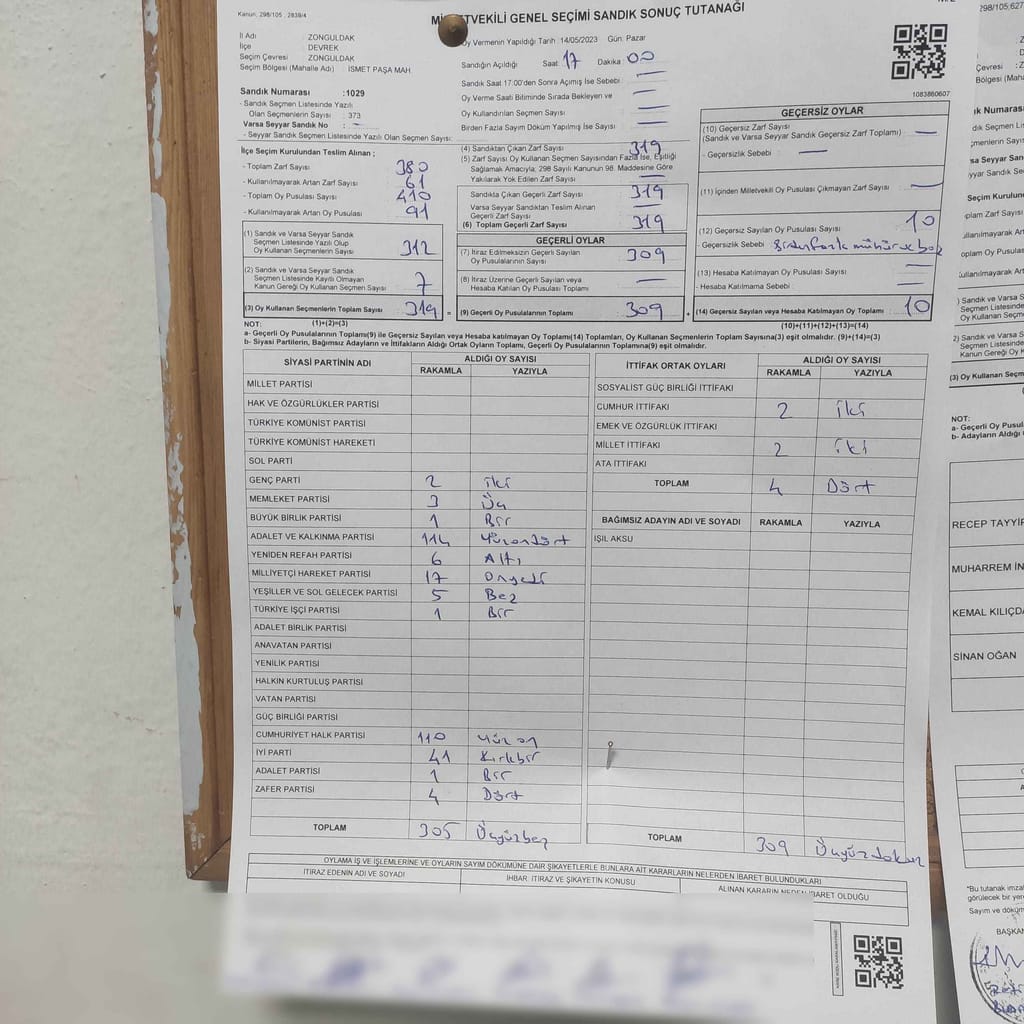 Kanun, 298/105 , 2839/4
MİLLETVEKİLİ GENEL SEÇİMİ SANDIK SONUÇ TUTANAĞI
İl Adı : ZONGULDAK
İlçe : DEVREK
Seçim Çevresi : ZONGULDAK
Seçim Bölgesi (Mahalle Adı) : İSMET PAŞA MAH.
Oy Vermenin Yapıldığı Tarih 14/05/2023 Gün: Pazar
Sandığın Açıldığı Saat 17 Dakika 00
Sandık Saat 17:00'den Sonra Açımış İse Sebebi :
Oy Verme Saati Bitiminda Sırada Bekleyen ve
Oy Kullandırılan Seçmen Sayısı :
Birden Fazla Sayım Döküm Yapılmış İse Sayısı :
1083860607
Sandık Numarası :1029
- Sandık Seçmen Listesinde Yazılı
Olan Seçmenlerin Sayısı : 373
Varsa Seyyar Sandık No : —
- Seyyar Sandık Seçmen Listesinde Yazılı Olan Seçmen Sayısı:
İlçe Seçim Kurulundan Teslim Alınan ;
- Toplam Zarf Sayısı : 380
- Kullanılmayarak Artan Zarf Sayısı : 61
- Toplam Oy Pusulası Sayısı : 410
- Kullanılmayarak Artan Oy Pusulası : 91
(1) Sandık ve Varsa Seyyar Sandık
Seçmen Listesinde Yazılı Olup
Oy Kullanan Seçmenlerin Sayısı : 312
(2) Sandık ve Varsa Seyyar Sandık
Seçmen Listesinde Kayıtlı Olmayan
Kanun Gereği Oy Kullanan Seçmen Sayısı : 7
(3) Oy Kullanan Seçmenlerin Toplam Sayısı : 319
(1)+(2)=(3)
(4) Sandıktan Çıkan Zarf Sayısı : 319
(5) Zarf Sayısı Oy Kullanan Seçmen Sayısından Fazla İse, Eşitliği
Sağlamak Amacıyla, 298 Sayılı Kanunun 98. Maddesine Göre
Yakılarak Yok Edilen Zarf Sayısı : —
Sandıkta Çıkan Geçerli Zarf Sayısı : 319
Varsa Seyyar Sandıktan Teslim Alınan
Geçerli Zarf Sayısı : —
(6) Toplam Geçerli Zarf Sayısı : 319
GEÇERLİ OYLAR
(7) İtiraz Edilmeksizin Geçerli Sayılan
Oy Pusulalarının Sayısı : 309
(8) İtiraz Üzerine Geçerli Sayılan veya
Hesaba Katılan Oy Pusulası Toplamı : —
= (9) Geçerli Oy Pusulalarının Toplamı : 309
GEÇERSİZ OYLAR
(10) Geçersiz Zarf Sayısı
(Sandık ve Varsa Seyyar Sandık Geçersiz Zarf Toplamı) : —
- Geçersizlik Sebebi : —
(11) İçinden Milletvekili Oy Pusulası Çıkmayan Zarf Sayısı : —
(12) Geçersiz Sayılan Oy Pusulası Sayısı : 10
- Geçersizlik Sebebi : Birden fazla mühür ve boş
(13) Hesaba Katılmayan Oy Pusulası Sayısı : —
- Hesaba Katılmama Sebebi : —
+ (14) Geçersiz Sayılan veya Hesaba Katılmayan Oy Toplamı : 10
(10)+(11)+(12)+(13)=(14)
NOT:
a- Geçerli Oy Pusulalarının Toplamı(9) ile Geçersiz Sayılan veya Hesaba katılmayan Oy Toplamı(14) Toplamları, Oy Kullanan Seçmenlerin Toplam Sayısına(3) eşit olmalıdır. (9)+(14)=(3)
b- Siyasi Partilerin, Bağımsız Adayların ve İttifakların Aldığı Ortak Oyların Toplamı, Geçerli Oy Pusulalarının Toplamına(9) eşit olmalıdır.
SİYASİ PARTİNİN ADI ALDIĞI OY SAYISI
RAKAMLA YAZIYLA
MİLLET PARTİSİ
HAK VE ÖZGÜRLÜKLER PARTİSİ
TÜRKİYE KOMÜNİST PARTİSİ
TÜRKİYE KOMÜNİST HAREKETİ
SOL PARTİ
GENÇ PARTİ 2 iki
MEMLEKET PARTİSİ 3 Üç
BÜYÜK BİRLİK PARTİSİ 1 Bir
ADALET VE KALKINMA PARTİSİ 114 Yüzondört
YENİDEN REFAH PARTİSİ 6 Altı
MİLLİYETÇİ HAREKET PARTİSİ 17 Onyedi
YEŞİLLER VE SOL GELECEK PARTİSİ 5 Beş
TÜRKİYE İŞÇİ PARTİSİ 1 Bir
ADALET BİRLİK PARTİSİ
ANAVATAN PARTİSİ
YENİLİK PARTİSİ
HALKIN KURTULUŞ PARTİSİ
VATAN PARTİSİ
GÜÇ BİRLİĞİ PARTİSİ
CUMHURİYET HALK PARTİSİ 110 Yüz on
İYİ PARTİ 41 Kırkbir
ADALET PARTİSİ 1 Bir
ZAFER PARTİSİ 4 Dört
TOPLAM 305 Üçyüzbeş
İTTİFAK ORTAK OYLARI ALDIĞI OY SAYISI
RAKAMLA YAZIYLA
SOSYALİST GÜÇ BİRLİĞİ İTTİFAKI
CUMHUR İTTİFAKI 2 iki
EMEK VE ÖZGÜRLÜK İTTİFAKI
MİLLET İTTİFAKI 2 iki
ATA İTTİFAKI
TOPLAM 4 Dört
BAĞIMSIZ ADAYIN ADI VE SOYADI RAKAMLA YAZIYLA
IŞIL AKSU
TOPLAM 309 Üçyüzdokuz
OYLAMA İŞ VE İŞLEMLERİNE VE OYLARIN SAYIM DÖKÜMÜNE DAİR ŞİKAYETLERLE BUNLARA AİT KARARLARIN NELERDEN İBARET BULUNDUKLARI
İTİRAZ EDENİN ADI VE SOYADI İHBAR, İTİRAZ VE ŞİKAYETİN KONUSU ALINAN KARARIN NEDEN İBARET OLDUĞU
298/105;627
Çevresi
Bölgesi (Mahal
NOT:
a- Geçerli Oy Pusula
b- Adayların Aldığı
RECEP TAYYİP
MUHARREM İN
KEMAL KILIÇDA
SİNAN OĞAN
*Bu tutanak imza
görülecek bir yere
Sayım ve döküm
BAŞKAN